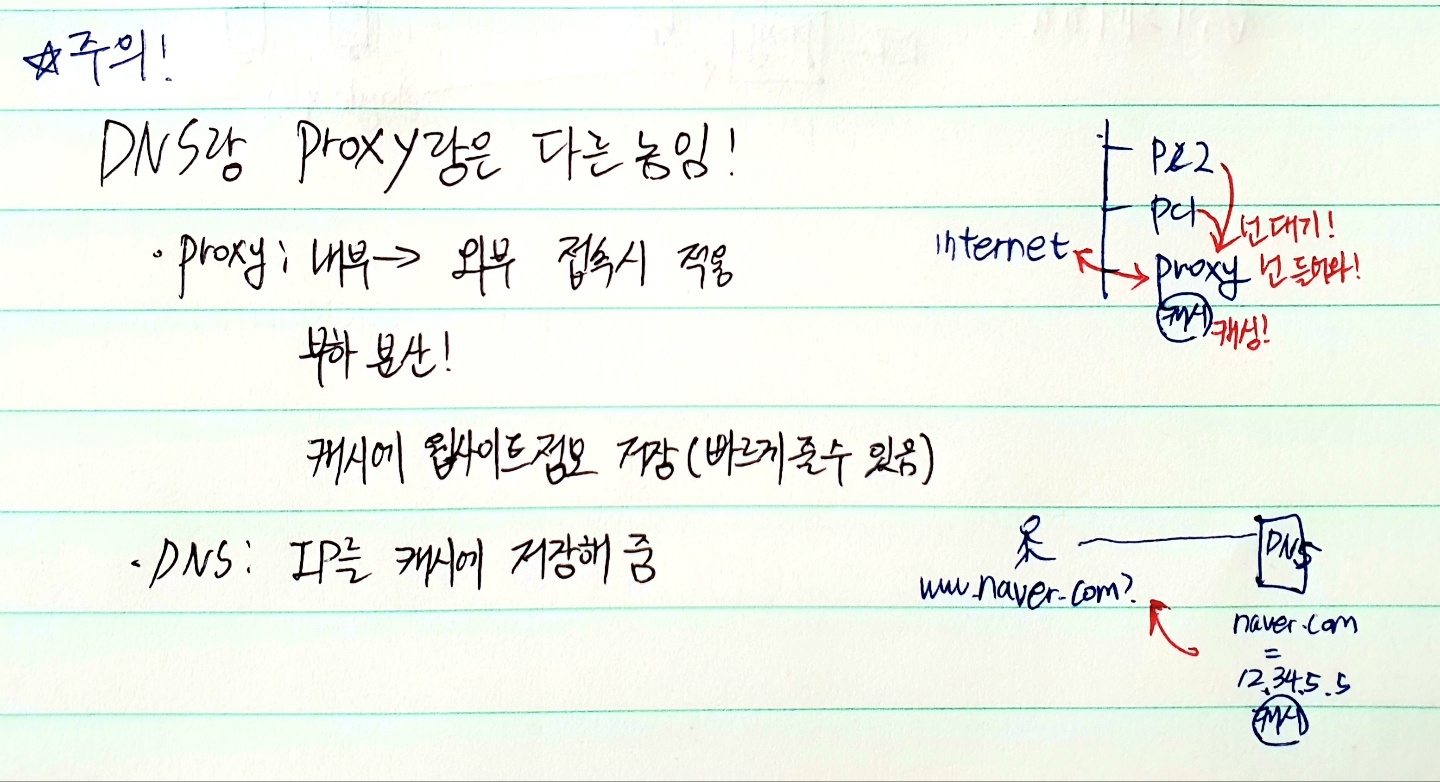 ☆주의!
DNS랑 Proxy랑은 다른놈임!
· Proxy : 내부→ 외부 접속시 적용
부하 분산!
캐시에 웹사이트정보 저장(빠르게줄수 있음)
· DNS : IP를 캐시에 저장해 줌
PC2
PC1
internet
넌대기!
proxy 넌 들어와!
캐시 캐싱!
DNS
www.naver.com?
naver.com
=
12.34.5.5
캐시